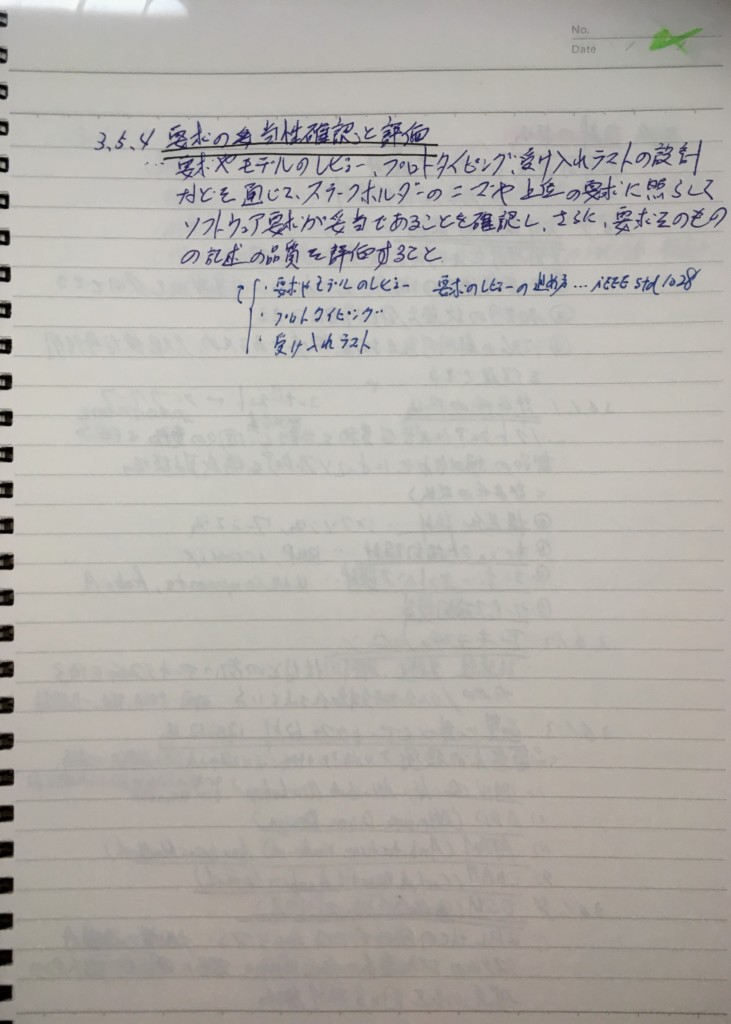 No.
Date
3.5.4 要求の妥当性確認と評価
… 要求やモデルのレビュー、プロトタイピング、受け入れテストの設計
などを通じて、ステークホルダーのニーズや上位の要求に照らして
ソフトウェア要求が妥当であることを確認し、さらに、要求そのもの
の記述の品質を評価すること
・要求やモデルのレビュー 要求のレビューの進め方…IEEE std 1028
・プロトタイピング
・受け入れテスト